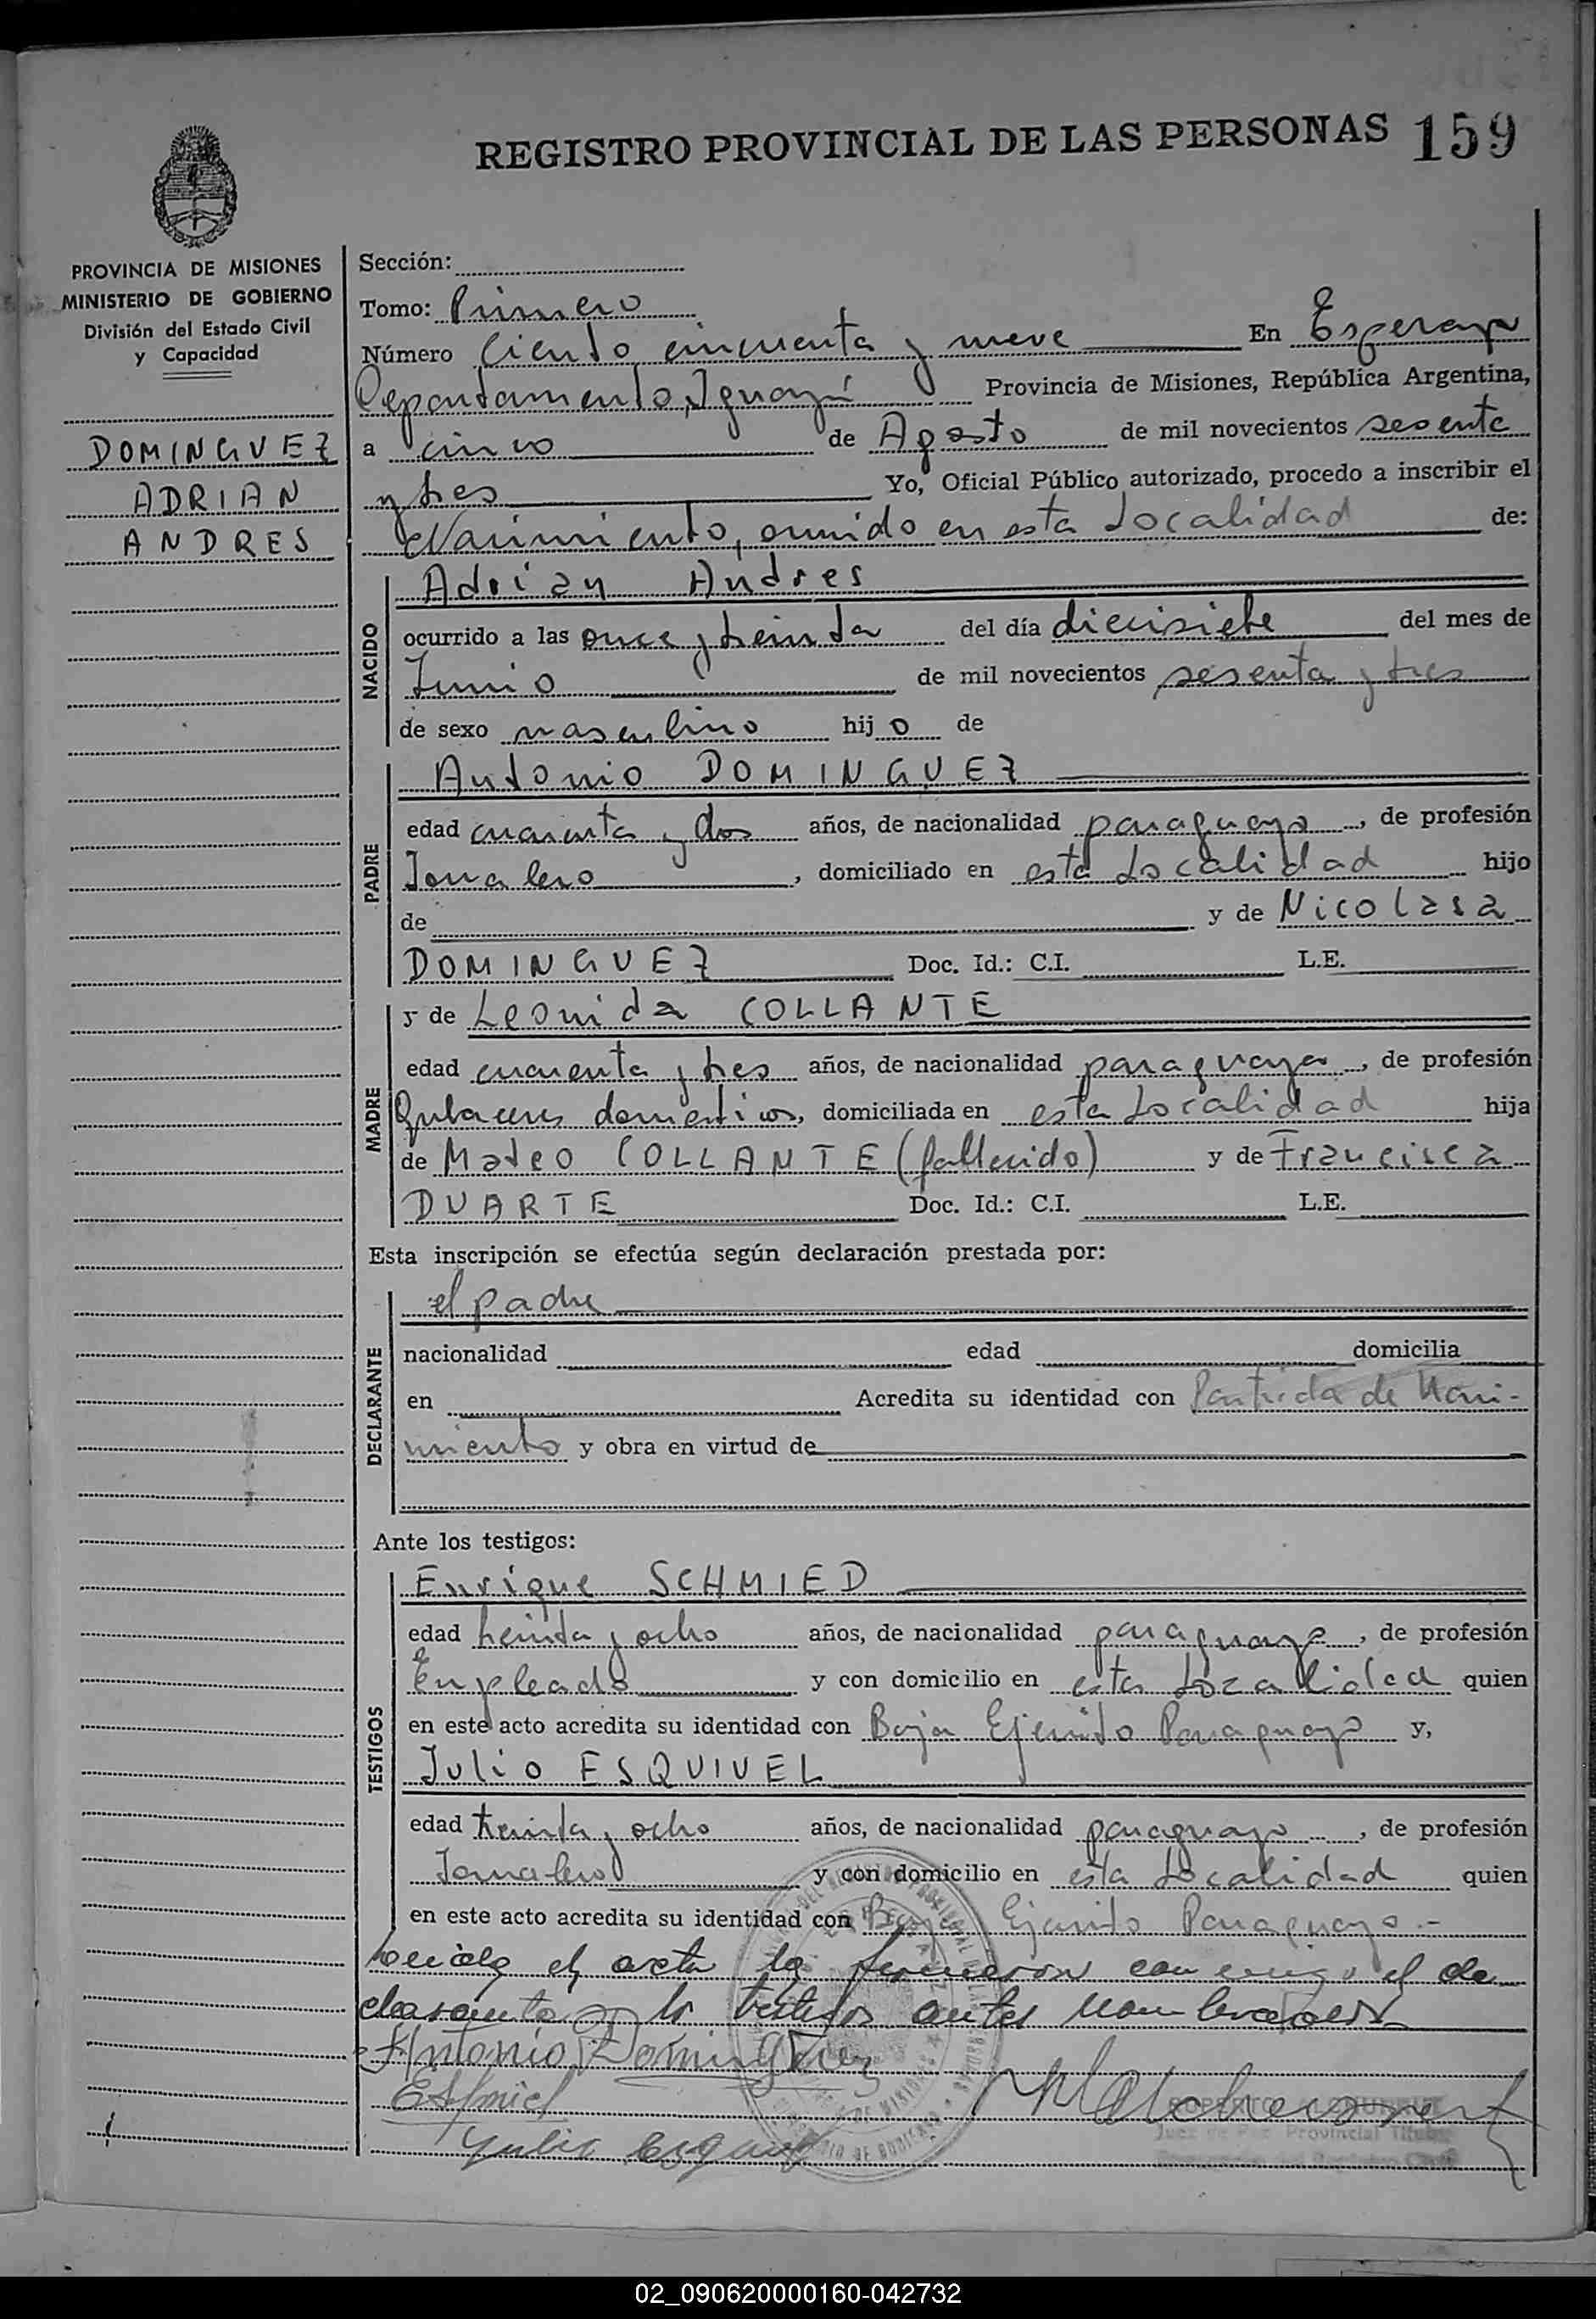 REGISTRO PROVINCIAL DE LAS PERSONAS 159
PROVINCIA DE MISIONES
MINISTERIO DE GOBIERNO
División del Estado Civil
y Capacidad
DOMINGUEZ
ADRIAN
ANDRES
Sección:
Tomo: Primero
Número Ciento cincuenta y nueve En Esperanza
Departamento Iguazú Provincia de Misiones, República Argentina,
a cinco de Agosto de mil novecientos sesenta
y tres Yo, Oficial Público autorizado, procedo a inscribir el
Nacimiento, ocurrido en esta Localidad de:
NACIDO
Adrian Andres
ocurrido a las once y treinta del día diecisiete del mes de
Junio de mil novecientos sesenta y tres
de sexo masculino hijo de
PADRE
Antonio DOMINGUEZ
edad cuarenta y dos años, de nacionalidad paraguayo, de profesión
Jornalero, domiciliado en esta Localidad hijo
de y de Nicolasa
DOMINGUEZ Doc. Id.: C.I. L.E.
MADRE
y de Leonida COLLANTE
edad cuarenta y tres años, de nacionalidad paraguaya, de profesión
Quehaceres domesticos, domiciliada en esta Localidad hija
de Mateo COLLANTE (fallecido) y de Francisca
DUARTE Doc. Id.: C.I. L.E.
Esta inscripción se efectúa según declaración prestada por:
DECLARANTE
el padre
nacionalidad edad domicilia
en Acredita su identidad con Partida de Naci-
miento y obra en virtud de
Ante los testigos:
TESTIGOS
Enrique SCHMIED
edad treinta y ocho años, de nacionalidad paraguayo, de profesión
Empleado y con domicilio en esta Localidad quien
en este acto acredita su identidad con Baja Ejercito Paraguayo y,
Julio ESQUIVEL
edad treinta y ocho años, de nacionalidad paraguayo, de profesión
Jornalero y con domicilio en esta Localidad quien
en este acto acredita su identidad con Baja Ejercito Paraguayo.-
Leida el acta la firmaron conmigo el de
clarante y los testigos antes nombrados
Antonio Dominguez
Julio Esquivel
Juez de Paz Provincial Titular
02_090620000160-042732